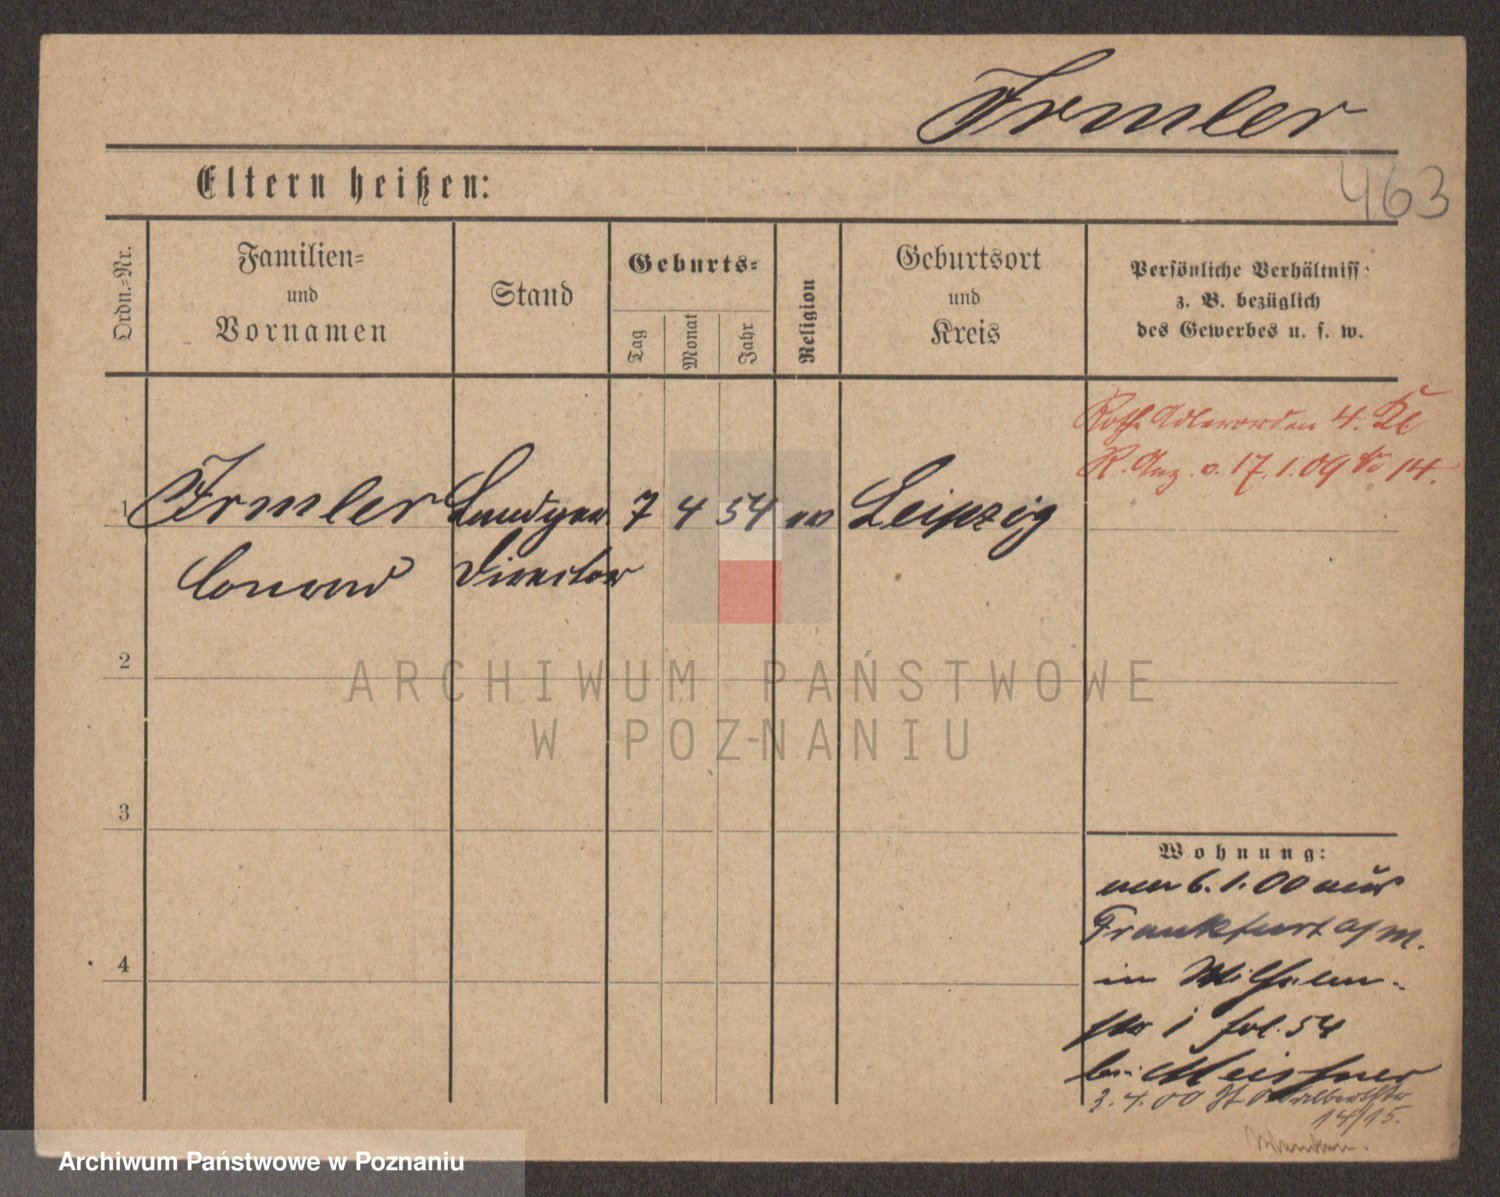 Irmler
463
Eltern heißen:
Ordn.-Nr.
Familien-
und
Vornamen
Stand
Geburts-
Tag
Monat
Jahr
Religion
Geburtsort
und
Kreis
Persönliche Verhältniss:
z. B. bezüglich
des Gewerbes u. s. w.
Roth. Adlerorden 4. Kl
R. Anz. v. 17.1.09 No 14.
1 Irmler Landger. 7 4 54 ev Leipzig
Conrad Director
2
ARCHIWUM PAŃSTWOWE
W POZNANIU
3
4
Wohnung:
am 6.1.00 aus
Frankfurt a/M.
in Wilhelm-
str 1 fol. 54
bei Meissner
3.4.00 St Adalbertstr
14/15.
Archiwum Państwowe w Poznaniu